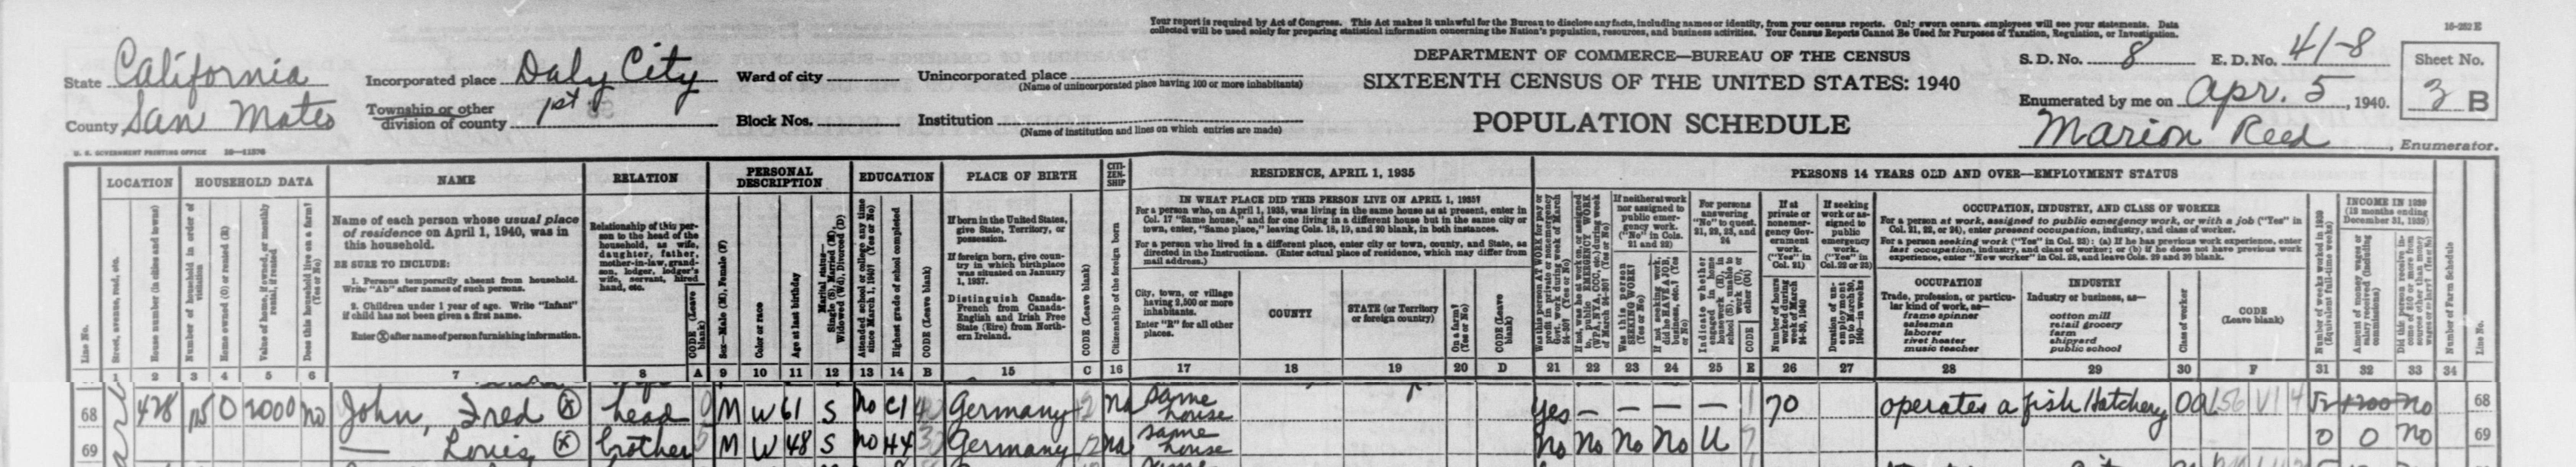 Your report is required by Act of Congress. This Act makes it unlawful for the Bureau to disclose any facts, including names or identity, from your census reports. Only sworn census employees will see your statements. Data
collected will be used solely for preparing statistical information concerning the Nation's population, resources, and business activities. Your Census Reports Cannot Be Used for Purposes of Taxation, Regulation, or Investigation.
16-252 E
State California
County San Mateo
Incorporated place Daly City
Township or other division of county 1st
Ward of city
Block Nos.
Unincorporated place
(Name of unincorporated place having 100 or more inhabitants)
Institution
(Name of institution and lines on which entries are made)
DEPARTMENT OF COMMERCE—BUREAU OF THE CENSUS
SIXTEENTH CENSUS OF THE UNITED STATES: 1940
POPULATION SCHEDULE
S. D. No. 8 E. D. No. 41-8
Enumerated by me on Apr. 5, 1940.
Marion Reed, Enumerator.
Sheet No.
3 B
U. S. GOVERNMENT PRINTING OFFICE
LOCATION
HOUSEHOLD DATA
NAME
RELATION
PERSONAL DESCRIPTION
EDUCATION
PLACE OF BIRTH
CITIZENSHIP
RESIDENCE, APRIL 1, 1935
PERSONS 14 YEARS OLD AND OVER—EMPLOYMENT STATUS
Line No.
Street, avenue, road, etc.
House number (in cities and towns)
Number of household in order of visitation
Home owned (O) or rented (R)
Value of home, if owned, or monthly rental, if rented
Does this household live on a farm? (Yes or No)
Name of each person whose usual place of residence on April 1, 1940, was in this household.
BE SURE TO INCLUDE:
1. Persons temporarily absent from household. Write "Ab" after names of such persons.
2. Children under 1 year of age. Write "Infant" if child has not been given a first name.
Enter X after name of person furnishing information.
Relationship of this person to the head of the household, as wife, daughter, father, mother-in-law, grandson, lodger, lodger's wife, servant, hired hand, etc.
CODE (Leave blank)
Sex—Male (M), Female (F)
Color or race
Age at last birthday
Marital status—Single (S), Married (M), Widowed (Wd), Divorced (D)
Attended school or college any time since March 1, 1940? (Yes or No)
Highest grade of school completed
CODE (Leave blank)
If born in the United States, give State, Territory, or possession.
If foreign born, give country in which birthplace was situated on January 1, 1937.
Distinguish Canada-French from Canada-English and Irish Free State (Eire) from Northern Ireland.
CODE (Leave blank)
Citizenship of the foreign born
IN WHAT PLACE DID THIS PERSON LIVE ON APRIL 1, 1935?
For a person who, on April 1, 1935, was living in the same house as at present, enter in Col. 17 "Same house," and for one living in a different house but in the same city or town, enter, "Same place," leaving Cols. 18, 19, and 20 blank, in both instances.
For a person who lived in a different place, enter city or town, county, and State, as directed in the Instructions. (Enter actual place of residence, which may differ from mail address.)
City, town, or village having 2,500 or more inhabitants.
Enter "R" for all other places.
COUNTY
STATE (or Territory or foreign country)
On a farm? (Yes or No)
CODE (Leave blank)
If neither at work nor assigned to public emergency work. ("No" in Cols. 21 and 22)
Was this person SEEKING WORK? (Yes or No)
For persons answering "No" to quest. 21, 22, 23, and 24
CODE
If at private or nonemergency Government work. ("Yes" in Col. 21)
Number of hours worked during week of March 24-30, 1940
If seeking work or assigned to public emergency work. ("Yes" in Col. 22 or 23)
Duration of unemployment up to March 30, 1940—in weeks
OCCUPATION, INDUSTRY, AND CLASS OF WORKER
For a person at work, assigned to public emergency work, or with a job ("Yes" in Col. 21, 22, or 24), enter present occupation, industry, and class of worker.
For a person seeking work ("Yes" in Col. 23): (a) If he has previous work experience, enter last occupation, industry, and class of worker; or (b) if he does not have previous work experience, enter "New worker" in Col. 28, and leave Cols. 29 and 30 blank.
OCCUPATION
Trade, profession, or particular kind of work, as—
frame spinner
salesman
laborer
rivet heater
music teacher
INDUSTRY
Industry or business, as—
cotton mill
retail grocery
farm
shipyard
public school
Class of worker
CODE (Leave blank)
Number of weeks worked in 1939 (Equivalent full-time weeks)
INCOME IN 1939 (12 months ending December 31, 1939)
Amount of money wages or salary received (including commissions)
Number of Farm Schedule
Line No.
1 2 3 4 5 6 7 8 A 9 10 11 12 13 14 B 15 C 16 17 18 19 20 D 21 22 23 24 25 E 26 27 28 29 30 F 31 32 33 34
68 428 115 O 2000 No John, Fred X head 0 M W 61 S No C1 Germany 12 na same house Yes — — — — 1 70 operates a fish Hatchery OA 156 V1 4 52 1200 no 68
69 — Louis X brother M W 48 S no H4 Germany 12 na same house No No No No U 0 0 No 69